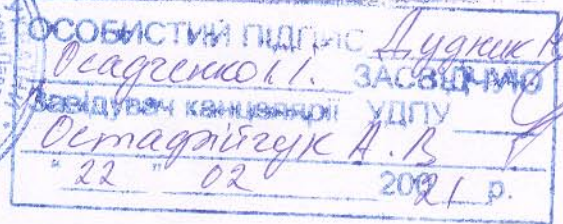 ОСОБИСТИЙ ПІДПИС Дудник Н
Осадченко І.І. ЗАСВІДЧУЮ
Завідувач канцелярії УДПУ
Остафійчук А.В
"22" 02 2021 р.